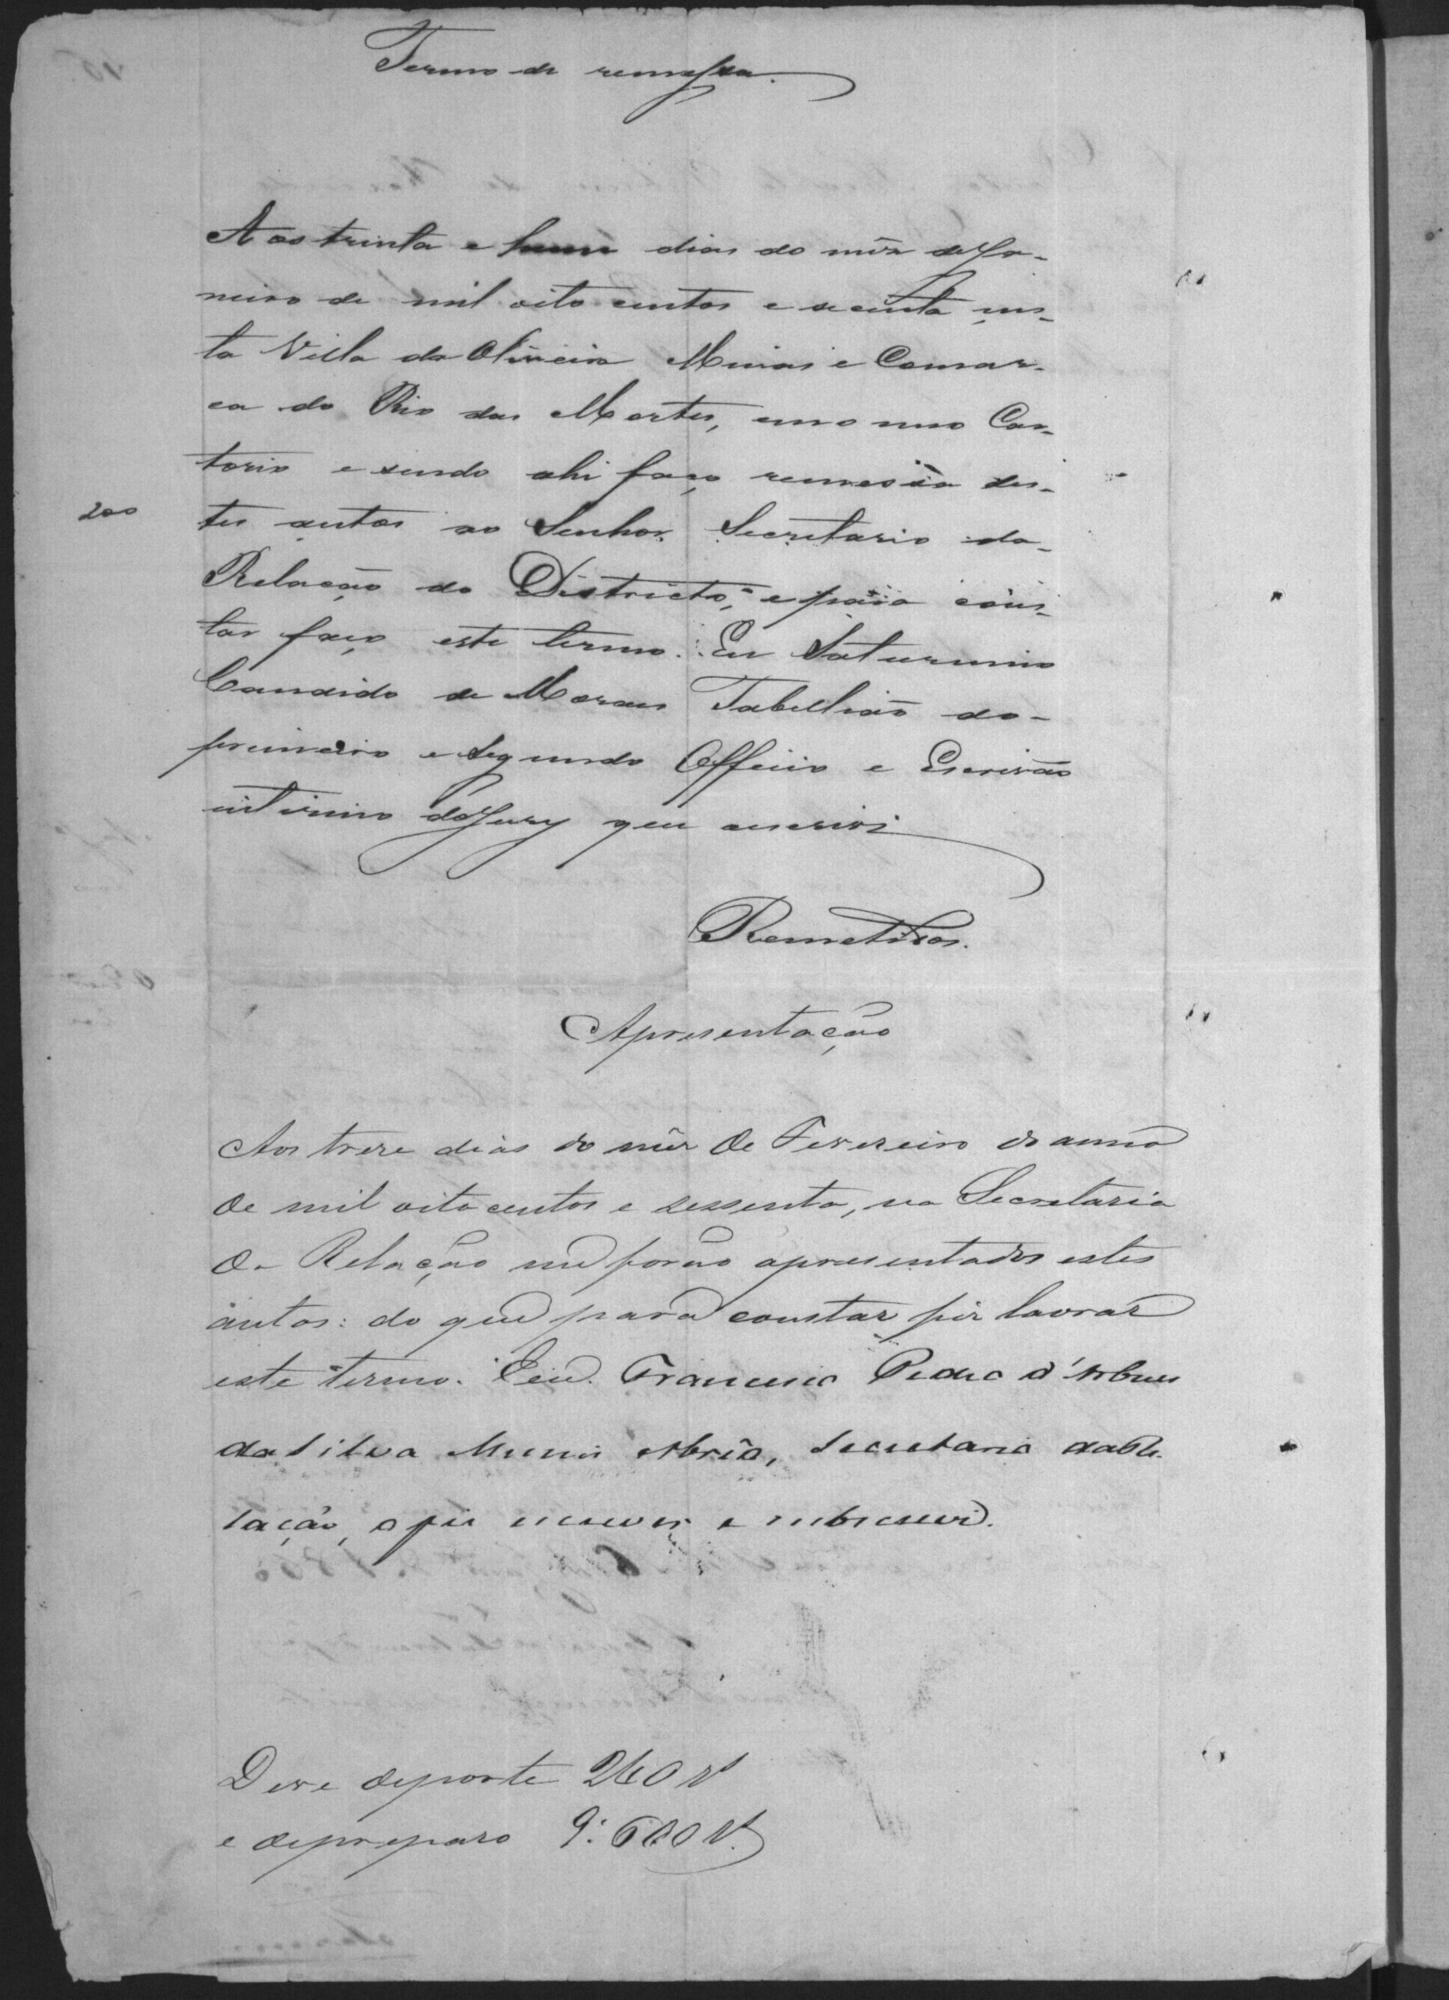 Termo de remessa.
Aos trinta e hum dias do mêz de Ja-
neiro de mil oito centos e secenta nes-
ta Villa da Oliveira Minas e Comar-
ca do Rio das Mortes, em o meo Car-
torio e sendo ahi faço remessa des-
200
tes autos ao Senhor Secretario da
Relação do Districto, e para cons-
tar faço este termo. Eu Saturnino
Candido de Moraes Tabellião do
primeiro e Segundo Officio e Escrivão
interino do Jury que escrevi
Remettidos.
Apresentação
Aos treze dias do mêz de Fevereiro do anno
de mil oito centos e sessenta, na Secretaria
da Relação me forão apresentados estes
autos: do que para constar fiz lavrar
este termo. Eu. Francisco Pedro d'Arbues
da Silva Muniz Abrêo, Secretario da Re-
lação, o fiz escrever e subscrevi.
Deve de porte 240 rs
e de preparo 9:600 rs.